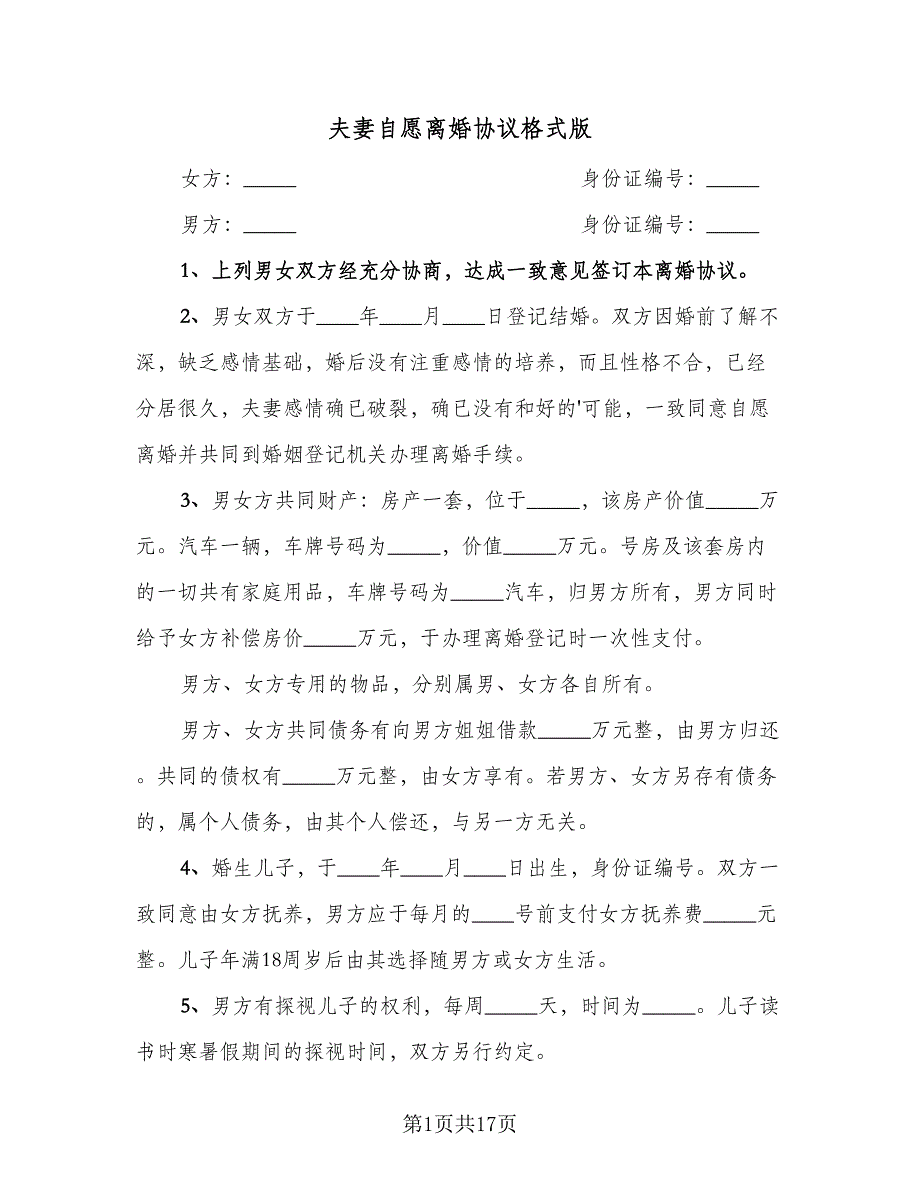 夫妻自愿离婚协议格式版
女方：_____ 身份证编号：_____
男方：_____ 身份证编号：_____
1、上列男女双方经充分协商，达成一致意见签订本离婚协议。
2、男女双方于____年____月____日登记结婚。双方因婚前了解不
深，缺乏感情基础，婚后没有注重感情的培养，而且性格不合，已经
分居很久，夫妻感情确已破裂，确已没有和好的'可能，一致同意自愿
离婚并共同到婚姻登记机关办理离婚手续。
3、男女方共同财产：房产一套，位于_____，该房产价值_____万
元。汽车一辆，车牌号码为_____，价值_____万元。号房及该套房内
的一切共有家庭用品，车牌号码为_____汽车，归男方所有，男方同时
给予女方补偿房价_____万元，于办理离婚登记时一次性支付。
男方、女方专用的物品，分别属男、女方各自所有。
男方、女方共同债务有向男方姐姐借款_____万元整，由男方归还
。共同的债权有_____万元整，由女方享有。若男方、女方另存有债务
的，属个人债务，由其个人偿还，与另一方无关。
4、婚生儿子，于____年____月____日出生，身份证编号。双方一
致同意由女方抚养，男方应于每月的____号前支付女方抚养费_____元
整。儿子年满18周岁后由其选择随男方或女方生活。
5、男方有探视儿子的权利，每周_____天，时间为_____。儿子读
书时寒暑假期间的探视时间，双方另行约定。
第1页共17页